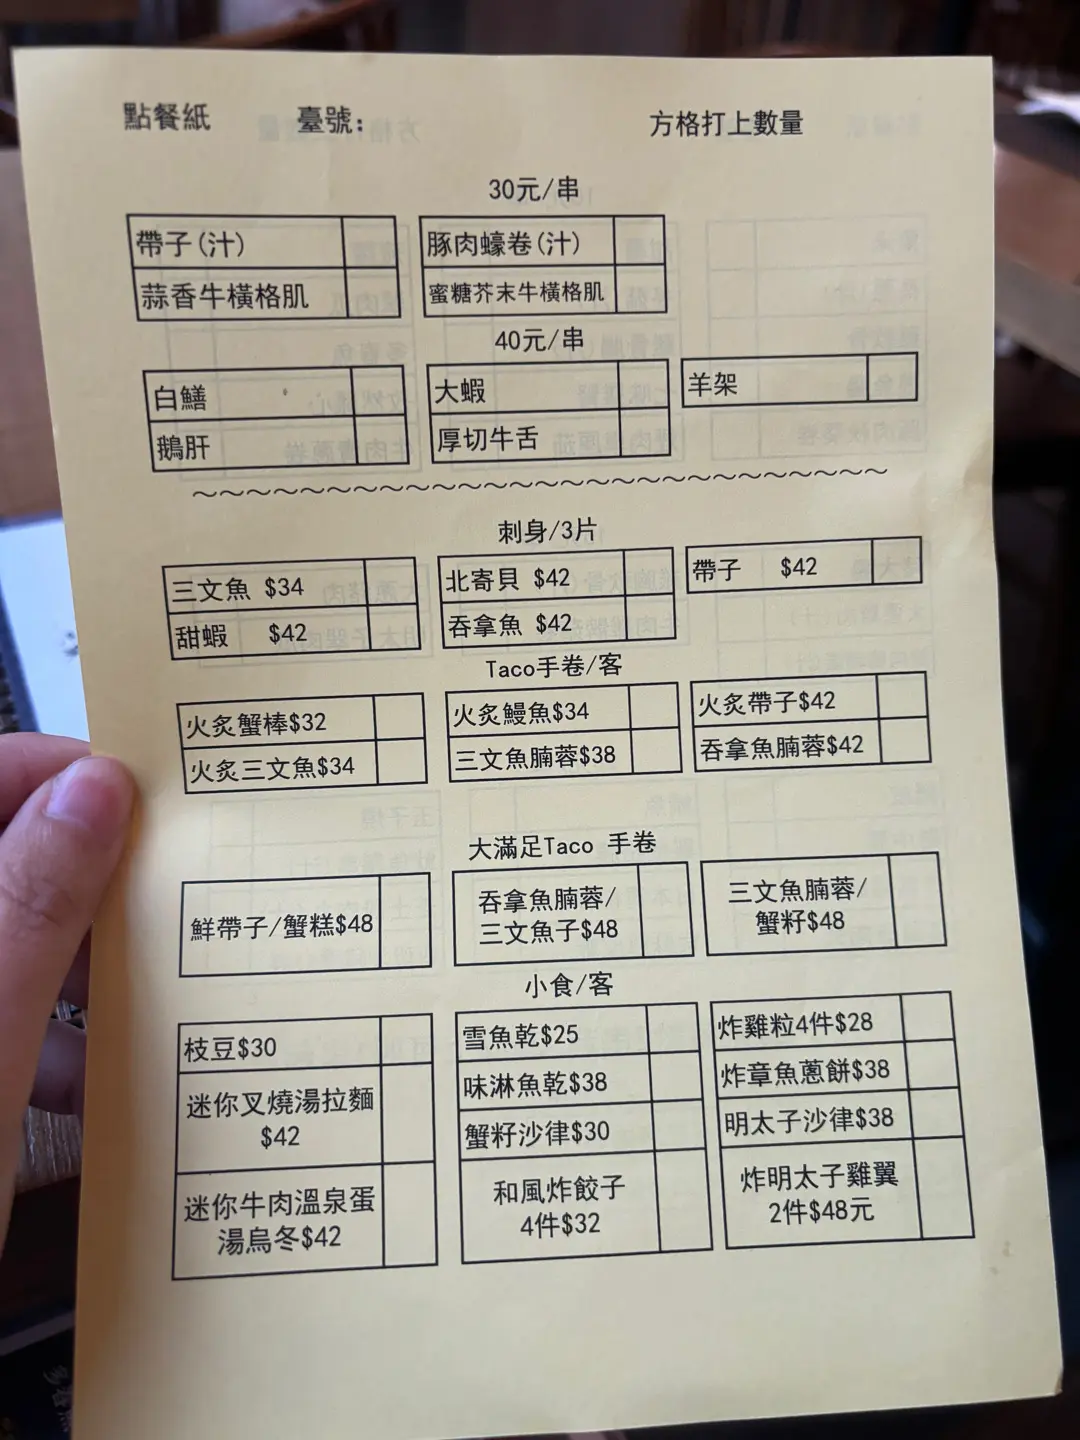 點餐紙 臺號: 方格打上數量
30元/串
帶子(汁) 豚肉蠔卷(汁)
蒜香牛橫格肌 蜜糖芥末牛橫格肌
40元/串
白鱔 大蝦 羊架
鵝肝 厚切牛舌
~~~~~~~~~~~~~~~~~~~~~~~~~~
刺身/3片
三文魚 $34 北寄貝 $42 帶子 $42
甜蝦 $42 吞拿魚 $42
Taco手卷/客
火炙蟹棒$32 火炙鰻魚$34 火炙帶子$42
火炙三文魚$34 三文魚腩蓉$38 吞拿魚腩蓉$42
大滿足Taco 手卷
鮮帶子/蟹糕$48
吞拿魚腩蓉/
三文魚子$48
三文魚腩蓉/
蟹籽$48
小食/客
枝豆$30
迷你叉燒湯拉麵
$42
迷你牛肉溫泉蛋
湯烏冬$42
雪魚乾$25
味淋魚乾$38
蟹籽沙律$30
和風炸餃子
4件$32
炸雞粒4件$28
炸章魚蔥餅$38
明太子沙律$38
炸明太子雞翼
2件$48元